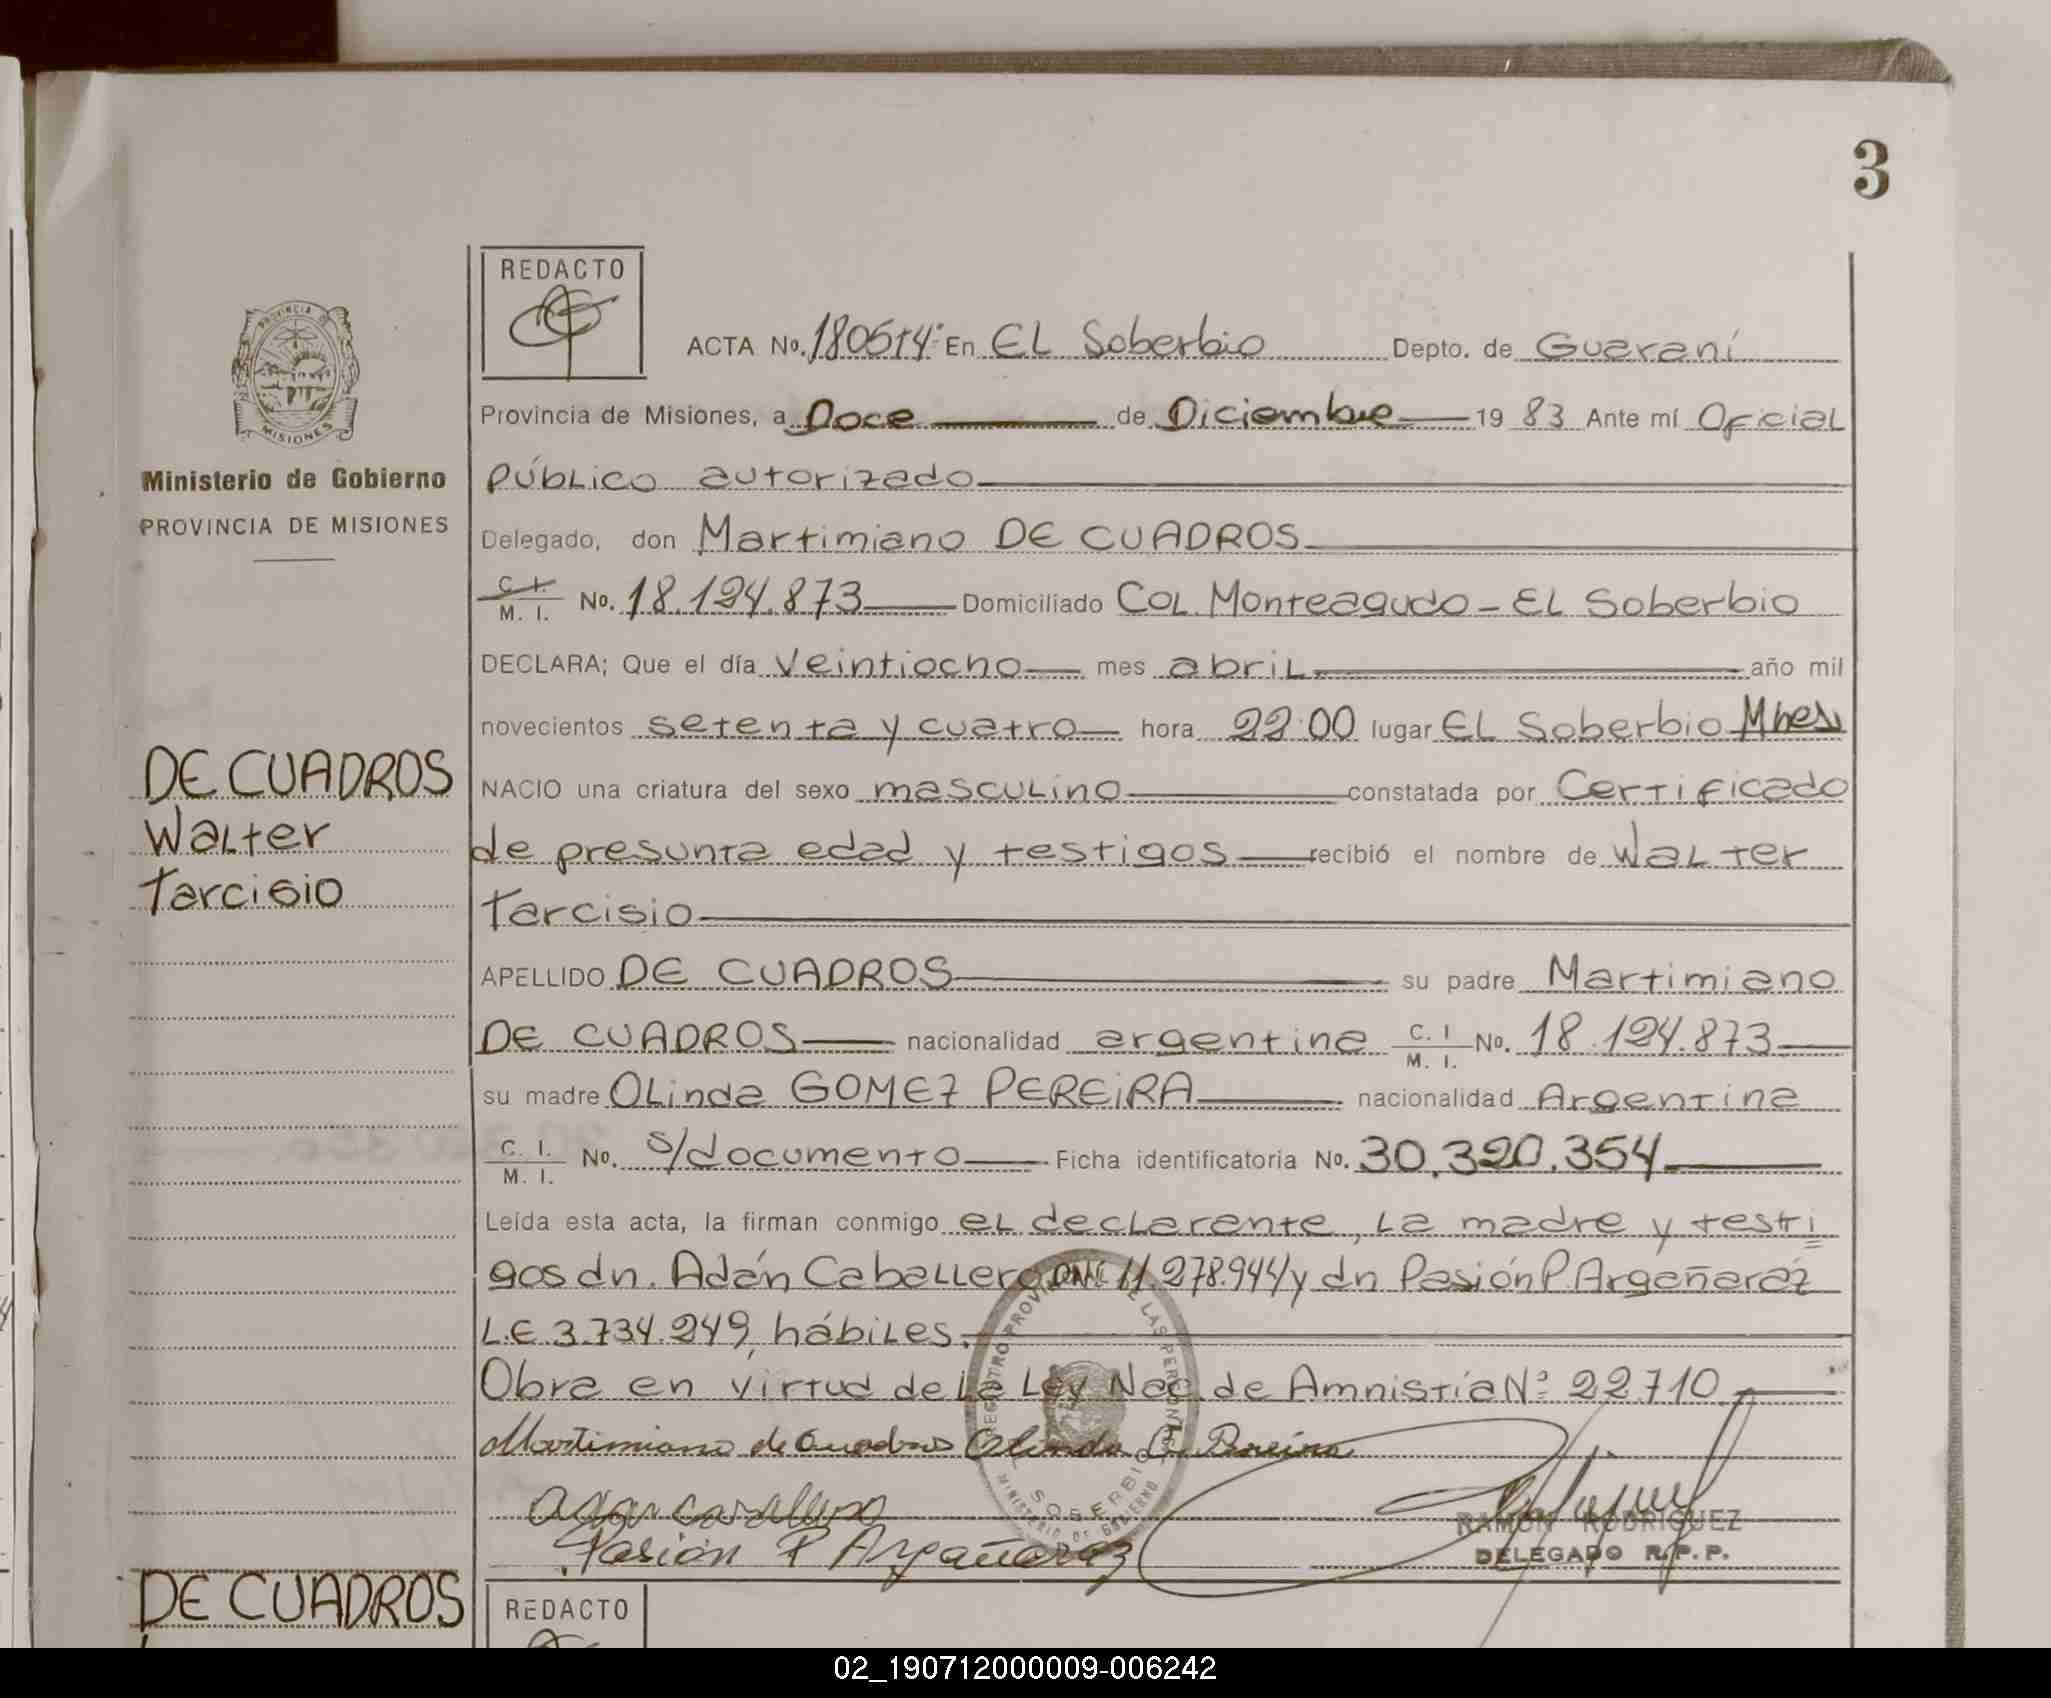 3
REDACTO
ACTA No. 180514 En EL Soberbio Depto. de Guaraní
Provincia de Misiones, a Doce de Diciembre 19 83 Ante mí Oficial
Público autorizado
Delegado, don Martimiano DE CUADROS
C. I. M. I. No. 18.124.873 Domiciliado Col. Monteagudo - EL Soberbio
DECLARA; Que el día Veintiocho mes abril año mil
novecientos setenta y cuatro hora 22:00 lugar EL Soberbio Mnes
NACIO una criatura del sexo masculino constatada por Certificado
de presunta edad y testigos recibió el nombre de Walter
Tarcisio
APELLIDO DE CUADROS su padre Martimiano
DE CUADROS nacionalidad argentina C. I M. I. No. 18.124.873
su madre Olinda GOMEZ PEREIRA nacionalidad Argentina
C. I. M. I. No. s/documento Ficha identificatoria No. 30.320.354
Leída esta acta, la firman conmigo el declarante, la madre y testi
gos dn. Adán Caballero DNI 11.278.944 y dn Pasión P. Argañaraz
L.E 3.734.249, hábiles.
Obra en virtud de la Ley Nac. de Amnistía Nº 22.710
Martimiano de Cuadros Olinda G. Pereira
Adan Caballero
Pasión P Argañaraz
RAMON RODRIGUEZ
DELEGADO R.P.P.
REGISTRO PROVINCIAL DE LAS PERSONAS
SOBERBIO
MINISTERIO DE GOBIERNO
PROVINCIA DE
MISIONES
Ministerio de Gobierno
PROVINCIA DE MISIONES
DE CUADROS
Walter
Tarcisio
DE CUADROS
REDACTO
02_190712000009-006242